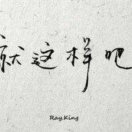 就这样吧
Ray King